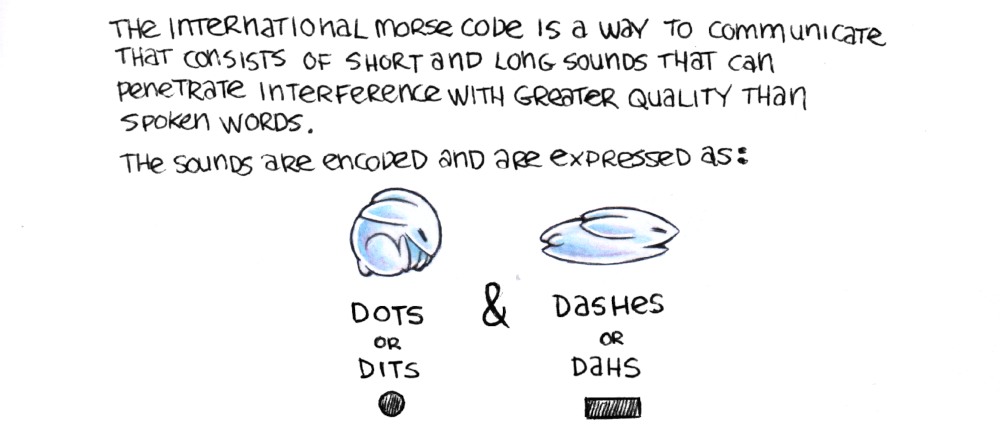 THE INTERNATIONAL MORSE CODE IS A WAY TO COMMUNICATE
THAT CONSISTS OF SHORT AND LONG SOUNDS THAT CAN
PENETRATE INTERFERENCE WITH GREATER QUALITY THAN
SPOKEN WORDS.
THE SOUNDS ARE ENCODED AND ARE EXPRESSED AS:
DOTS & DASHES
OR OR
DITS DAHS